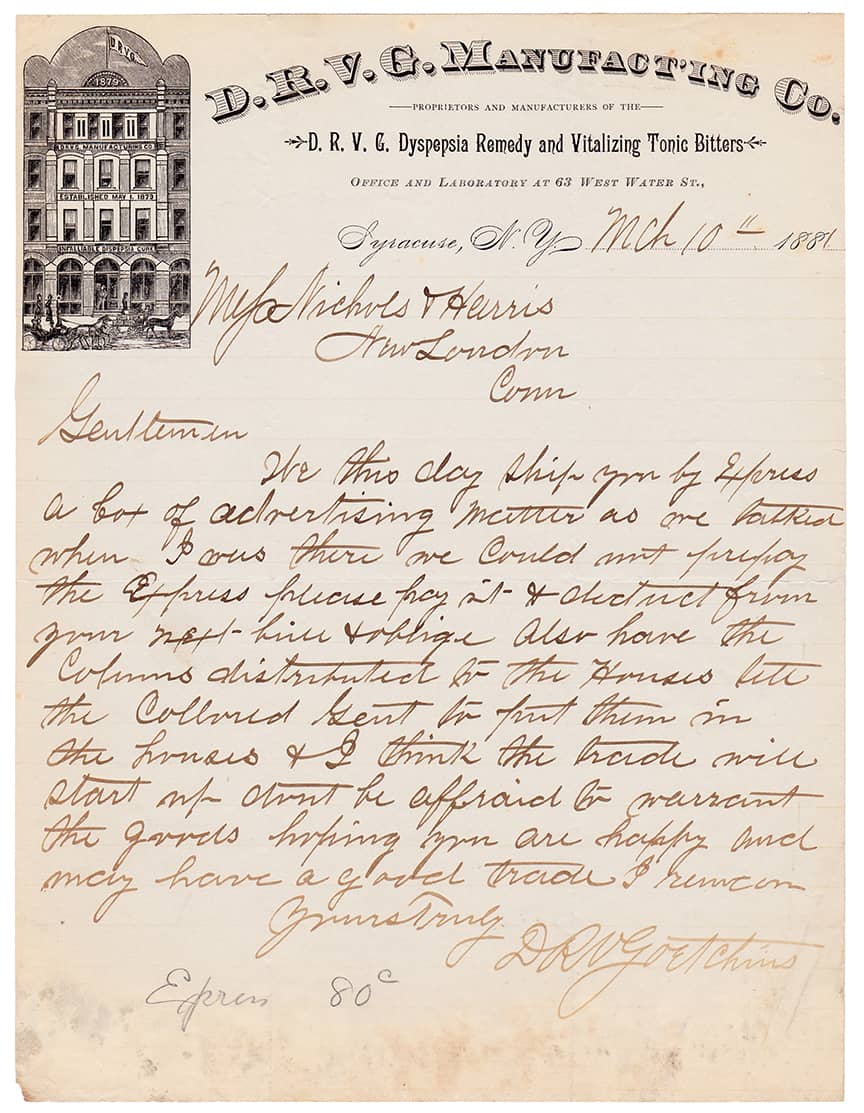 D.R.V.G.
1879
D.R.V.G. MANUFACTURING CO.
ESTABLISHED MAY 1. 1879
INFALLIABLE DISPEPSIA CURE
D.R.V.G. MANUFACT'ING CO.
PROPRIETORS AND MANUFACTURERS OF THE
D. R. V. G. Dyspepsia Remedy and Vitalizing Tonic Bitters
OFFICE AND LABORATORY AT 63 WEST WATER ST.,
Syracuse, N. Y. Mch 10" 1881
Mess Nichols & Harris
New London
Conn
Gentlemen
We this day ship you by Express
a box of advertising matter as we talked
when I was there we could not prepay
the Express please pay it & deduct from
your next bill & oblige Also have the
Colums distributed to the Houses lett
the Collored Gent to put them in
the houses & I think the trade will
start up dont be affraid to warrant
the goods hoping you are happy and
may have a good trade I remain
Yours Truly
D R V Goetchius
Express 80c